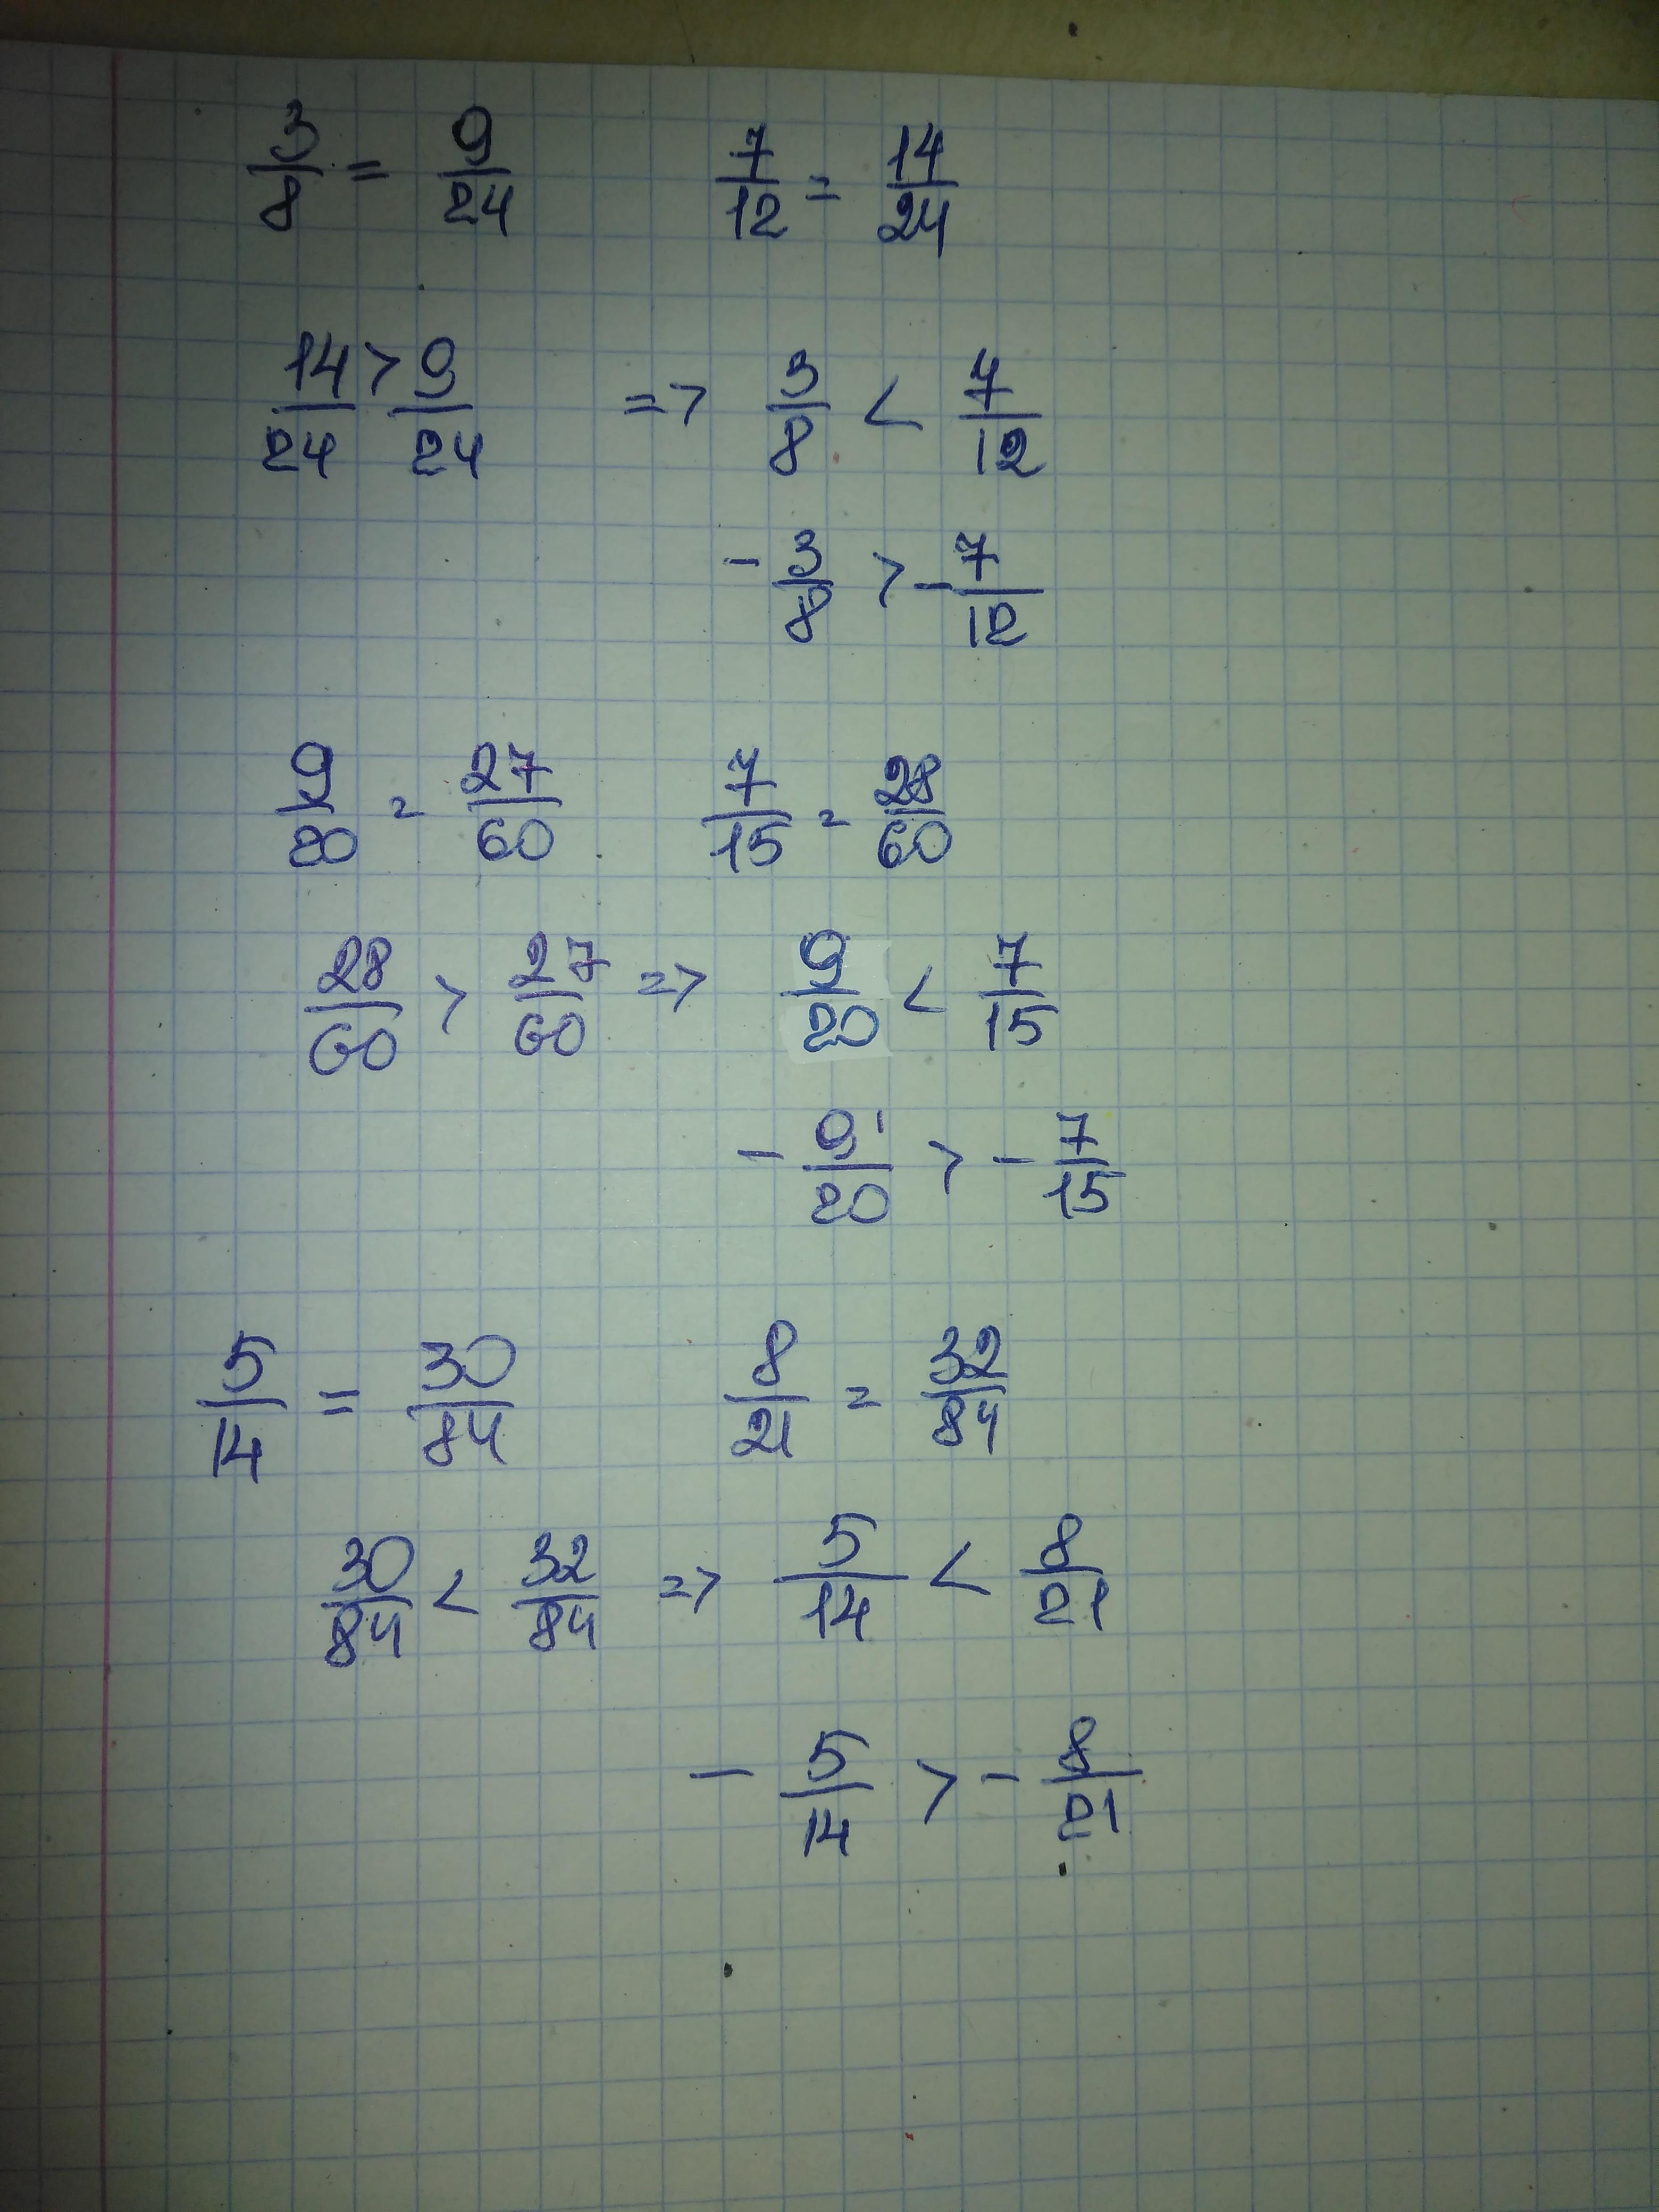 3/8 = 9/24 7/12 = 14/24
14/24 > 9/24 => 3/8 < 7/12
- 3/8 > - 7/12
9/20 = 27/60 7/15 = 28/60
28/60 > 27/60 => 9/20 < 7/15
- 9/20 > - 7/15
5/14 = 30/84 8/21 = 32/84
30/84 < 32/84 => 5/14 < 8/21
- 5/14 > - 8/21